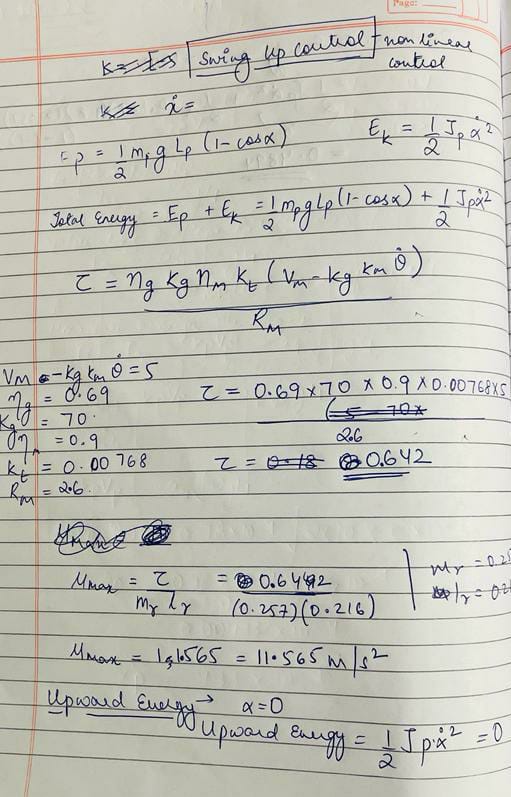 Page:
Swing Up Control - non linear
control
ẋ =
Ep = 1/2 mp g Lp (1 - cosα)   Ek = 1/2 Jp α̇²
Total Energy = Ep + Ek = 1/2 mp g Lp (1 - cosα) + 1/2 Jp α̇²
τ = ηg Kg ηm Kt (Vm - Kg Km θ̇)
Rm
Vm - Kg Km θ̇ = 5
ηg = 0.69   τ = 0.69 × 70 × 0.9 × 0.00768 × 5
Kg = 70   2.6
= 0.9
Kt = 0.00768   τ = 0.642
Rm = 2.6
Mmax = τ / mr lr = 0.6442 / (0.257)(0.216)   mr = 0.25
lr = 0.2
Mmax = 11.565 = 11.565 m/s²
Upward Energy → α = 0
Upward Energy = 1/2 Jp α̇² = 0